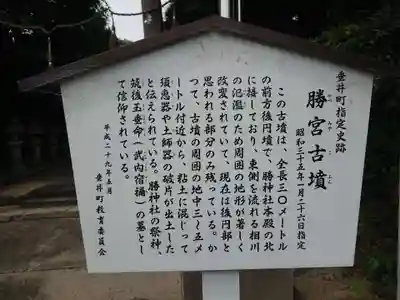 垂井町指定史跡
勝宮古墳
昭和三十五年一月二十六日指定
この古墳は、全長三〇メートル
の前方後円墳で、勝神社本殿の北
に接しており、東側を流れる相川
の氾濫のため周囲の地形が著しく
改変されていて、現在は後円部と
思われる部分のみ残っている。か
つて、古墳の周囲の地中三〜五メ
ートル付近から、粘土に混じって
須恵器や土師器の破片が出土した
と伝えられている。勝神社の祭神、
筑後玉垂命(武内宿禰)の墓とし
て信仰されている。
平成二十九年五月
垂井町教育委員会